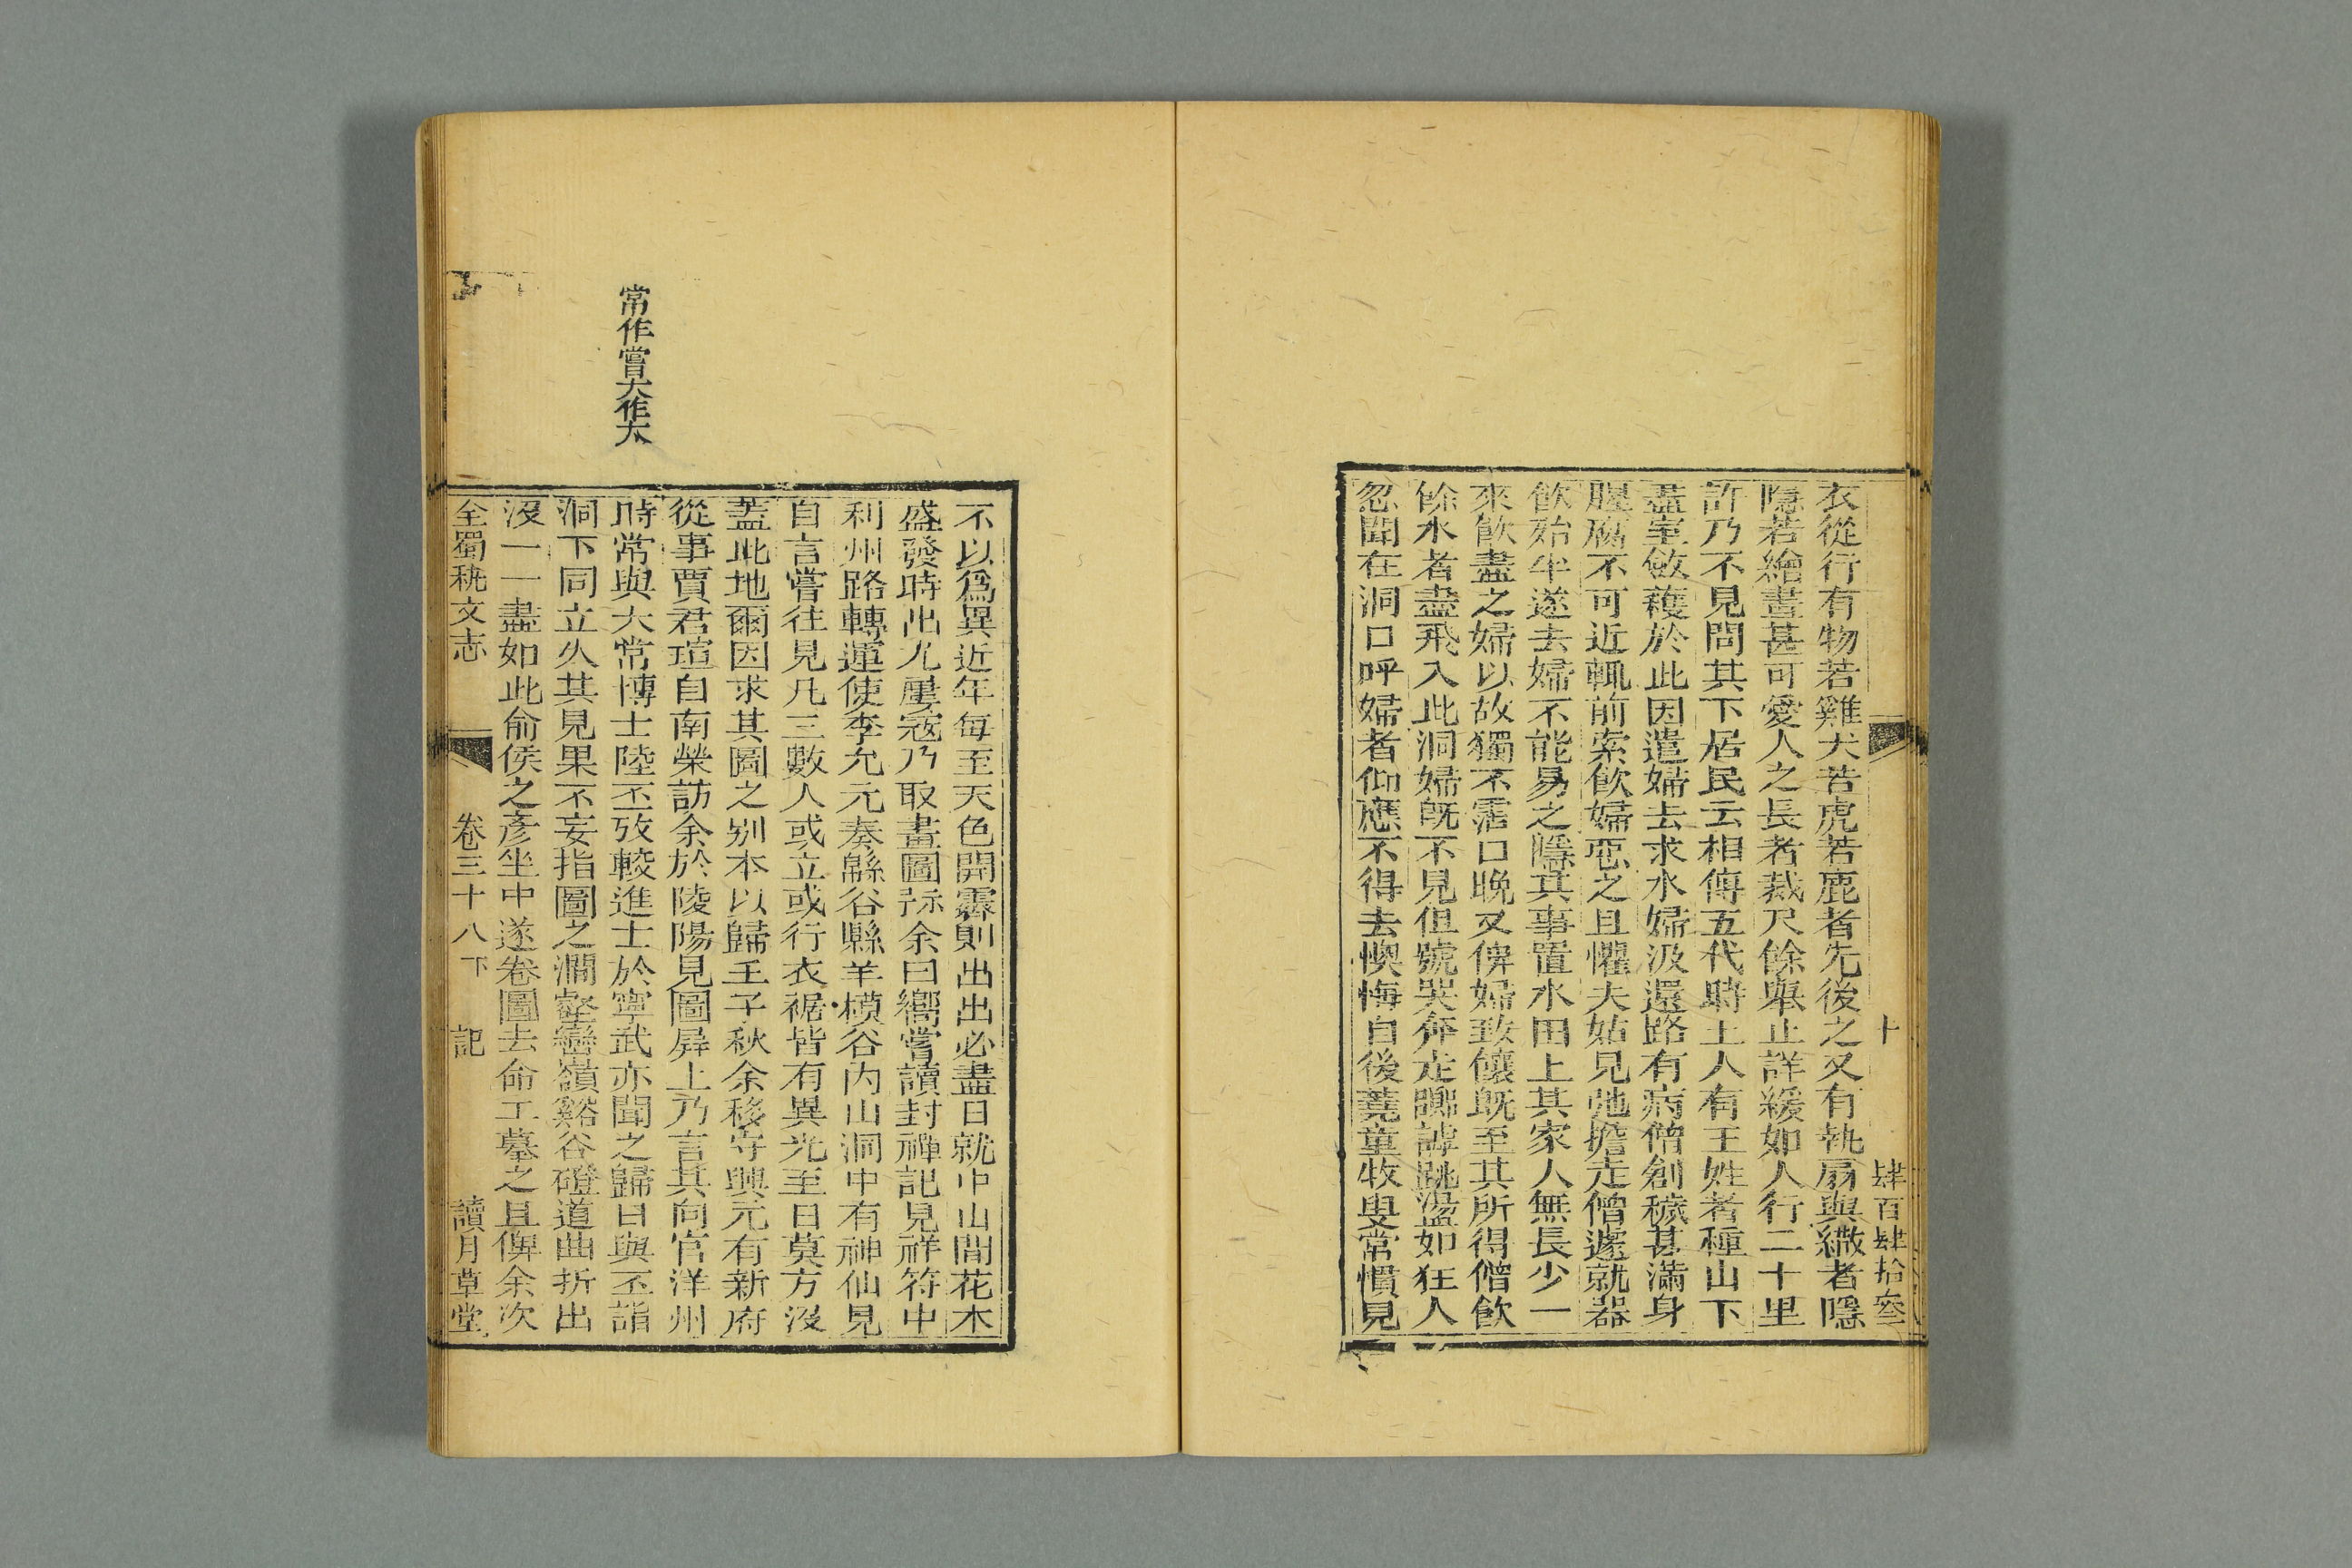 十 肆百肆拾叄
衣從行有物若雞犬若虎若鹿者先後之又有執扇與繖者隱
隱若繪畫甚可愛人之長者裁尺餘舉止詳緩如人行二十里
許乃不見問其下居民云相傳五代時土人有王姓者種山下
盡室斂穫於此因遣婦去求水婦汲還路有病僧創穢甚滿身
腥腐不可近輒前索飲婦惡之且懼夫姑見弛擔走僧遽就器
飲殆半遂去婦不能易之隱其事置水田上其家人無長少一
來飲盡之婦以故獨不霑口晚又俾婦致饟旣至其所得僧飲
餘水者盡飛入此洞婦旣不見但號哭奔走躑𨅖跳蕩如狂人
忽聞在洞口呼婦者仰應不得去懊悔自後蕘童牧叟常慣見
不以爲異近年每至天色開霽則出出必盡日就中山間花木
盛發時出尤屢寇乃取畫圖示余曰嚮嘗讀封禪記見祥符中
利州路轉運使李允元奏緜谷縣羊模谷内山洞中有神仙見
自言嘗往見凡三數人或立或行衣裾皆有異光至日莫方沒
蓋此地爾因求其圖之别本以歸壬子秋余移守興元有新府
從事賈君瑄自南榮訪余於陵陽見圖屏上乃言其向官洋州
時常與大常博士陸丕攷較進士於寧武亦聞之歸日與丕詣
洞下同立久其見果不妄指圖之澗壑巒嶺谿谷磴道曲折出
沒一一盡如此俞侯之彥坐中遂卷圖去命工摹之且俾余次
全蜀秇文志 卷三十八下 記 讀月草堂
常作嘗大作太